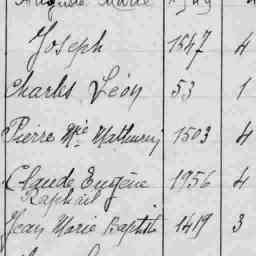 Auguste Marie
Joseph 1547 4
Charles Léon 53 1
Pierre Mie Mathurin 1503 4
Claude Eugène 1956 4
Raphaël
Jean Marie Baptiste 1419 3